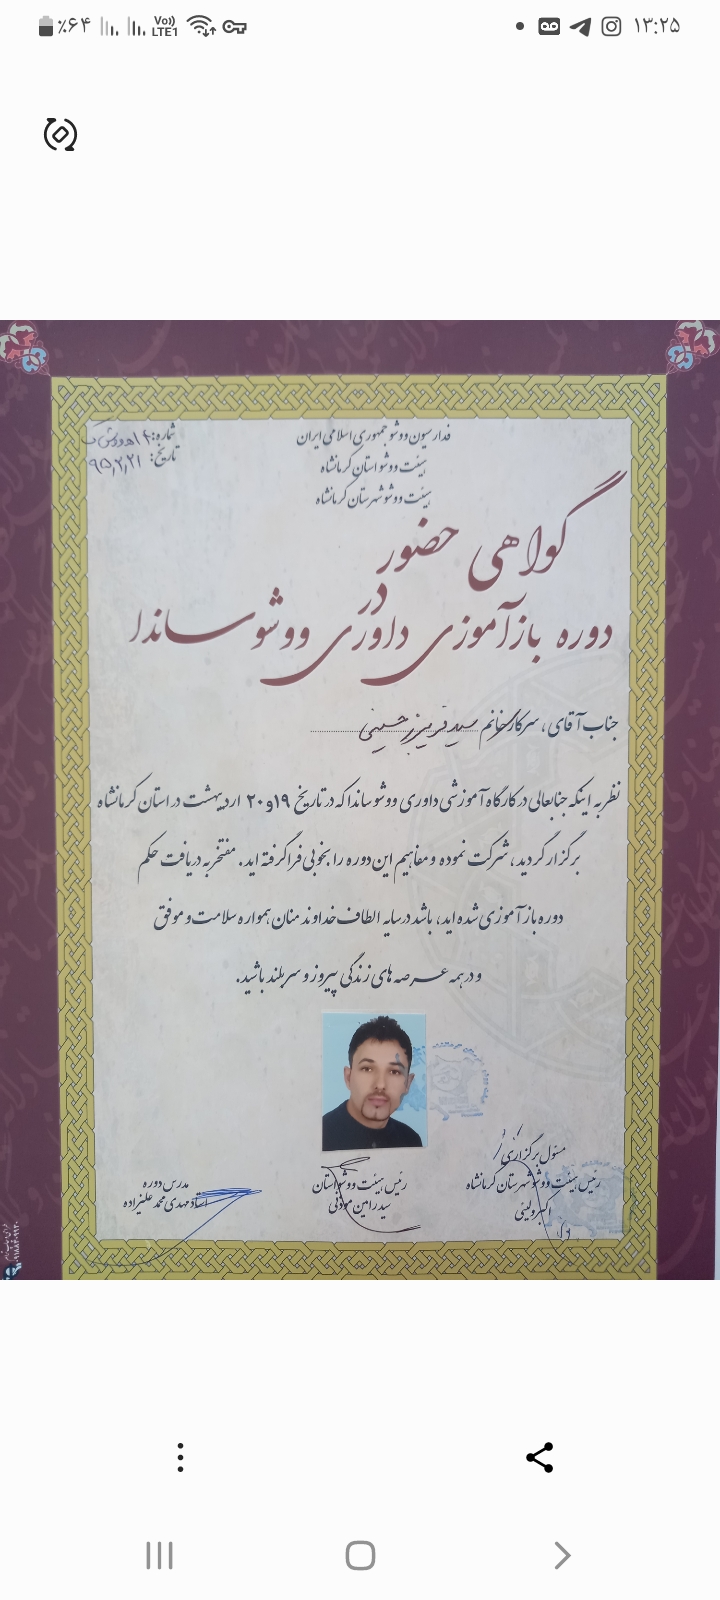 ٪۶۴ Vo)) LTE1 ۱۳:۲۵
فدارسیون ووشو جمهوری اسلامی ایران
هیئت ووشو استان کرمانشاه
هیئت ووشو شهرستان کرمانشاه
شماره:
تاریخ: ۹۵,۲,۲۱
گواهی حضور
در
دوره بازآموزی داوری ووشو ساندا
جناب آقای، سرکار خانم سید فریبرز حسینی
نظر به اینکه جنابعالی در کارگاه آموزشی داوری ووشو ساندا که در تاریخ ۱۹و۲۰ اردیبهشت در استان کرمانشاه
برگزار گردید، شرکت نموده و مفاهیم این دوره را بخوبی فرا گرفته اید. مفتخر به دریافت حکم
دوره باز آموزی شده اید، باشد در سایه الطاف خداوند منان همواره سلامت و موفق
و در همه عرصه های زندگی پیروز و سربلند باشید.
مسئول برگزاری
رئیس هیئت ووشو شهرستان کرمانشاه
اکبر ولیئی
رئیس هیئت ووشو استان
سید رامین موذنی
مدرس دوره
استاد مهدی محمد علیزاده